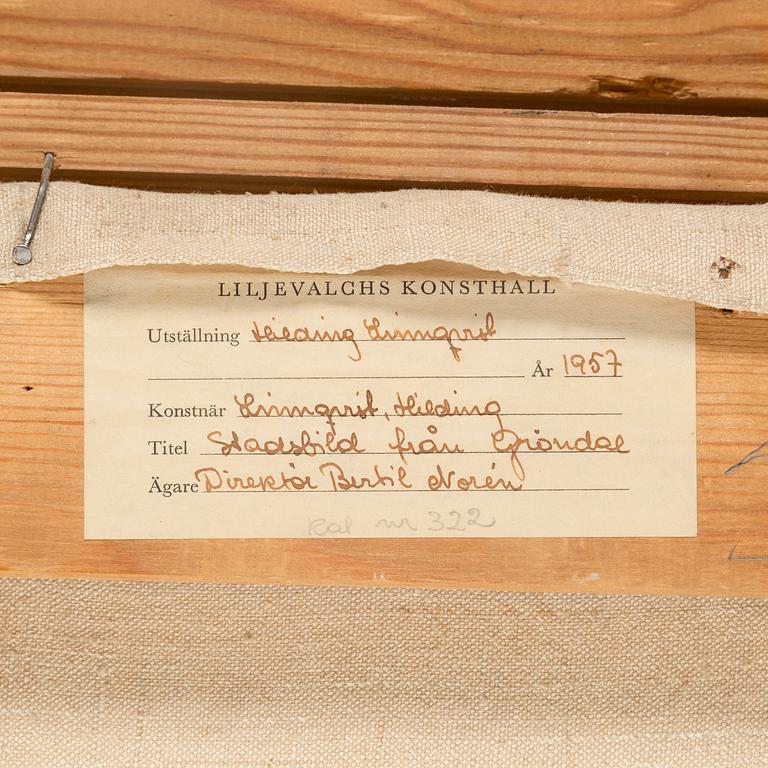 LILJEVALCHS KONSTHALL
Utställning Hilding Linnqvist
År 1957
Konstnär Linnqvist, Hilding
Titel Stadsbild från Gröndal
Ägare Direktör Bertil Norén
Kat. nr 322